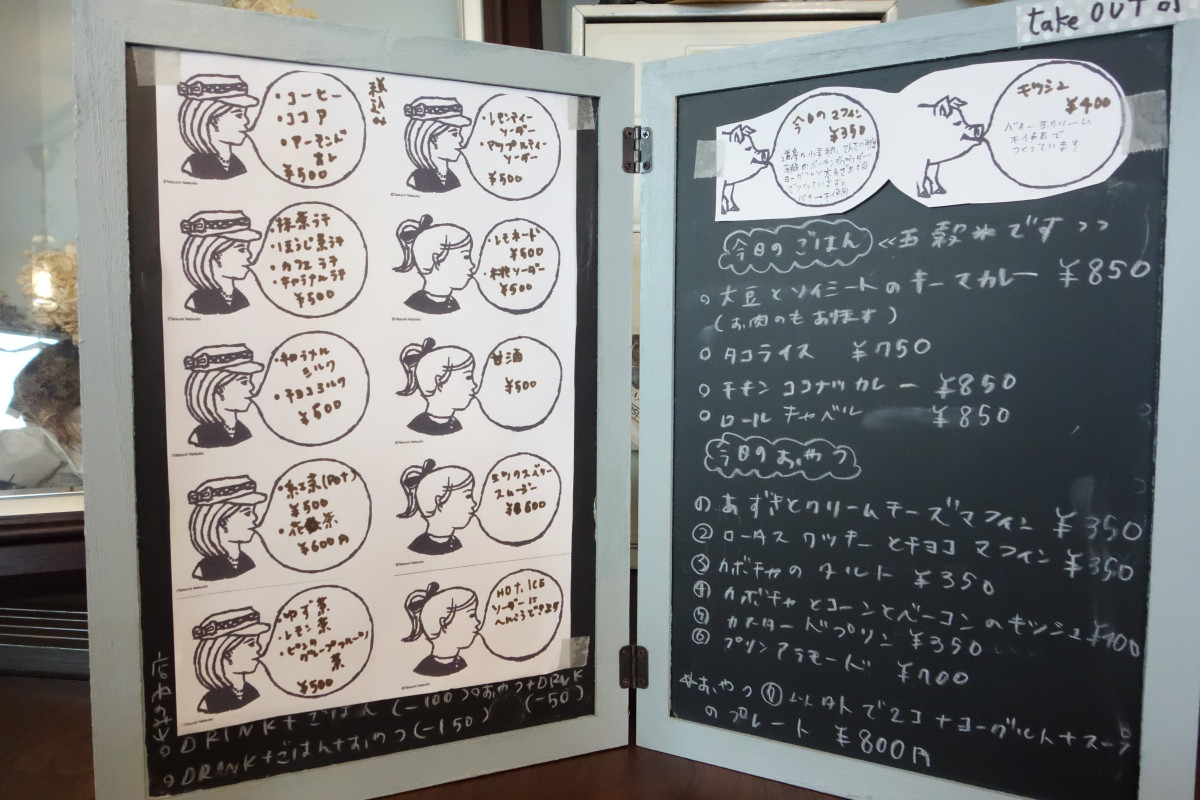 税込み
・コーヒー
・ココア
・アーモンド
オレ
¥500
・抹茶ラテ
・ほうじ茶ラテ
・カフェラテ
・キャラメルラテ
¥500
・キャラメル
ミルク
・チョコミルク
¥500
・紅茶(Pot)
¥500
・花茶
¥600円
・ゆず茶
・レモン茶
・ピンク
グレープフルーツ
茶
¥500
・レモンティー
ソーダー
・アップルティー
ソーダー
¥500
・レモネード
¥500
・木桃ソーダー
¥500
甘酒
¥500
ミックスベリー
スムージー
¥600
HOT, ICE
ソーダーに
DRINK+ごはん(-100)
おやつ+DRINK
(-50)
DRINK+ごはん+おやつ(-150)
take OUT
今日のマフィン
¥350
キッシュ
¥400
バター生クリーム
不使用で
つくっています
今日のごはん
<<五穀米です>>
○大豆とソイミートのキーマカレー ¥850
(お肉のもあります)
○タコライス ¥750
○チキンココナツカレー ¥850
○ロールキャベル ¥850
今日のおやつ
①あずきとクリームチーズマフィン ¥350
②ロータスクッキーとチョコマフィン ¥350
③カボチャのタルト ¥350
④カボチャとコーンとベーコンのキッシュ ¥400
⑤カスタードプリン ¥350
⑥プリンアラモード ¥700
☆おやつ⑥以外で2コ+ヨーグルト+スープ
のプレート ¥800円